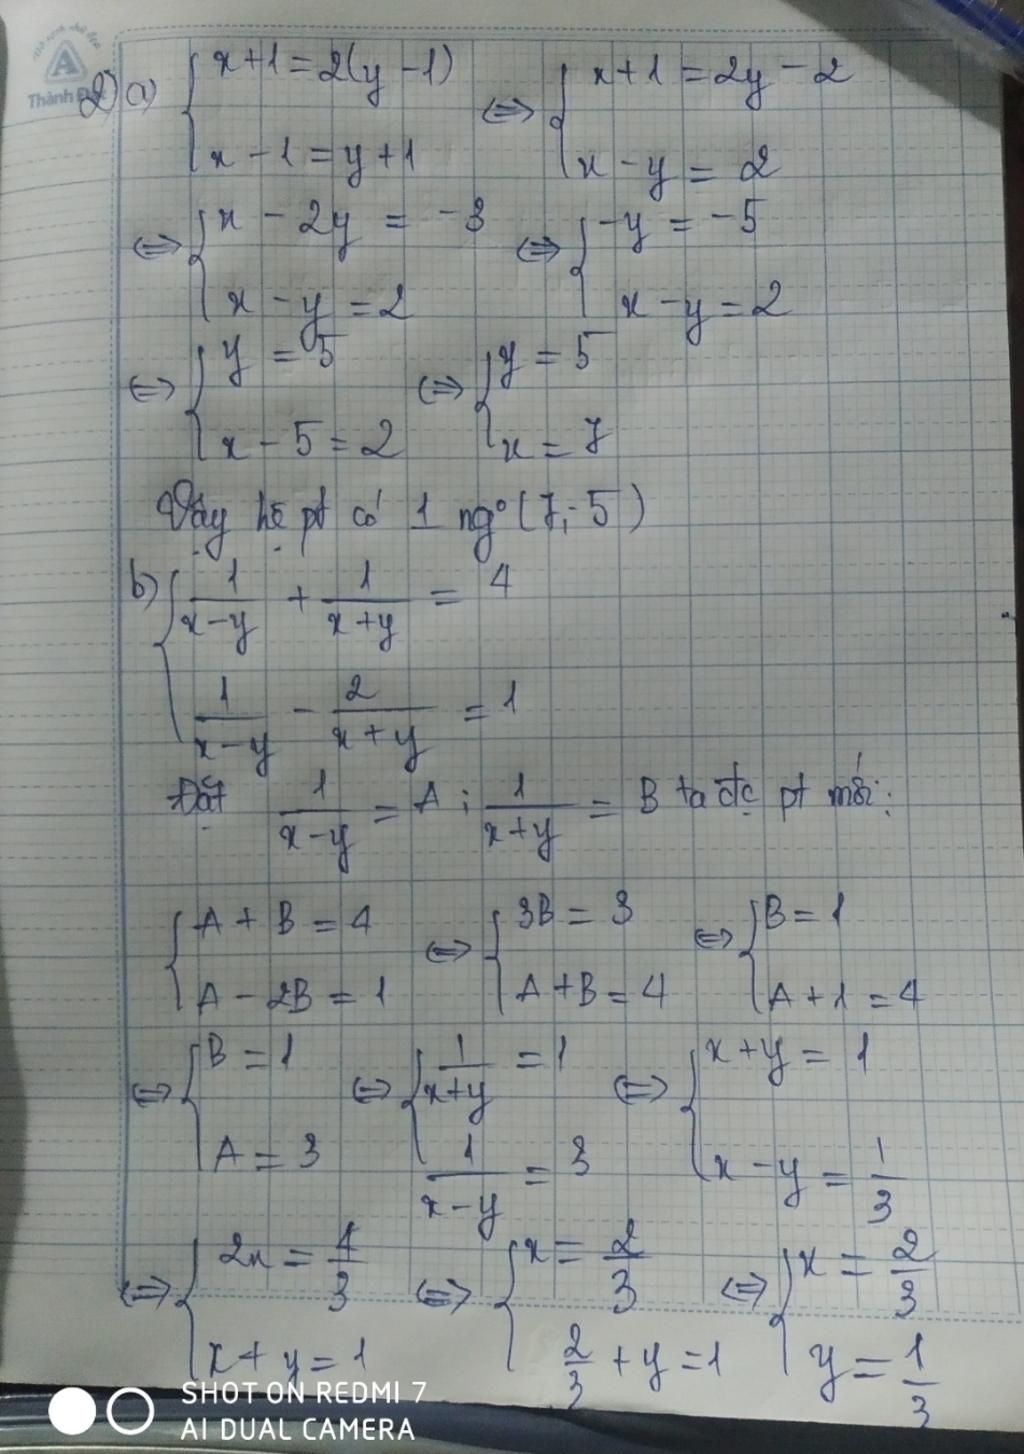 Thành Đạt
2) a) { x+1 = 2(y-1) ⇔ { x+1 = 2y - 2
x - 1 = y + 1    x - y = 2
⇔ { x - 2y = -3 ⇔ { -y = -5
x - y = 2    x - y = 2
⇔ { y = 5 ⇔ { y = 5
x - 5 = 2    x = 7
Vậy hệ pt có 1 ngo (7; 5)
b) { 1/(x-y) + 1/(x+y) = 4
1/(x-y) - 2/(x+y) = 1
Đặt 1/(x-y) = A ; 1/(x+y) = B ta đc pt mới:
{ A + B = 4 ⇔ { 3B = 3 ⇔ { B = 1
A - 2B = 1    A + B = 4    A + 1 = 4
⇔ { B = 1 ⇔ { 1/(x+y) = 1 ⇔ { x + y = 1
A = 3    1/(x-y) = 3    x - y = 1/3
⇔ { 2x = 4/3 ⇔ { x = 2/3 ⇔ { x = 2/3
x + y = 1    2/3 + y = 1    y = 1/3
SHOT ON REDMI 7
AI DUAL CAMERA